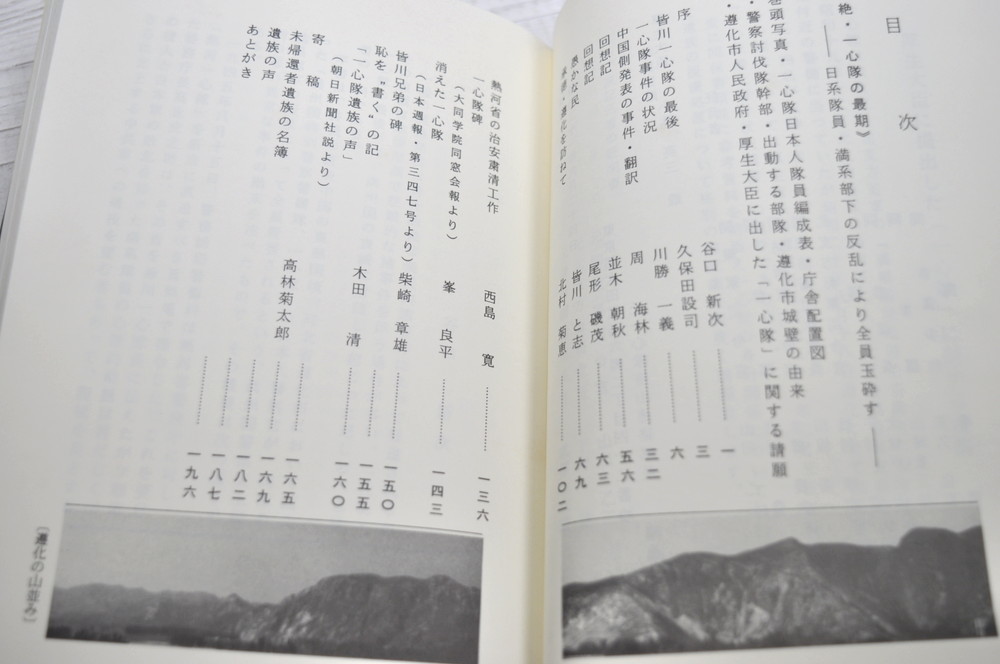 目 次
絶・一心隊の最期》
――日系隊員・満系部下の反乱により全員玉砕す――
巻頭写真・一心隊日本人隊員編成表・庁舎配置図
・警察討伐隊幹部・出動する部隊・遵化市城壁の由来
・遵化市人民政府・厚生大臣に出した「一心隊」に関する請願
序 谷口 新次 一
皆川一心隊の最後 久保田設司 三
一心隊事件の状況 川勝 一義 六
中国側発表の事件・翻訳 周 海林 三二
回想記 並木 朝秋 五六
回想記 尾形 磯茂 六三
愚かな民 皆川 と志 六九
承徳・遵化を訪ねて 北村 菊恵 一〇二
熱河省の治安粛清工作 西島 寛 一三六
一心隊碑
(大同学院同窓会報より) 峯 良平 一四三
消えた一心隊
(日本週報・第三四七号より) 柴崎 章雄 一五〇
皆川兄弟の碑 一五五
恥を“書く”の記 木田 清 一六〇
「一心隊遺族の声」
(朝日新聞社説より) 一六五
寄 稿 高林菊太郎 一六九
未帰還者遺族の名簿 一八二
遺族の声 一八七
あとがき 一九六
〔遵化の山並み〕